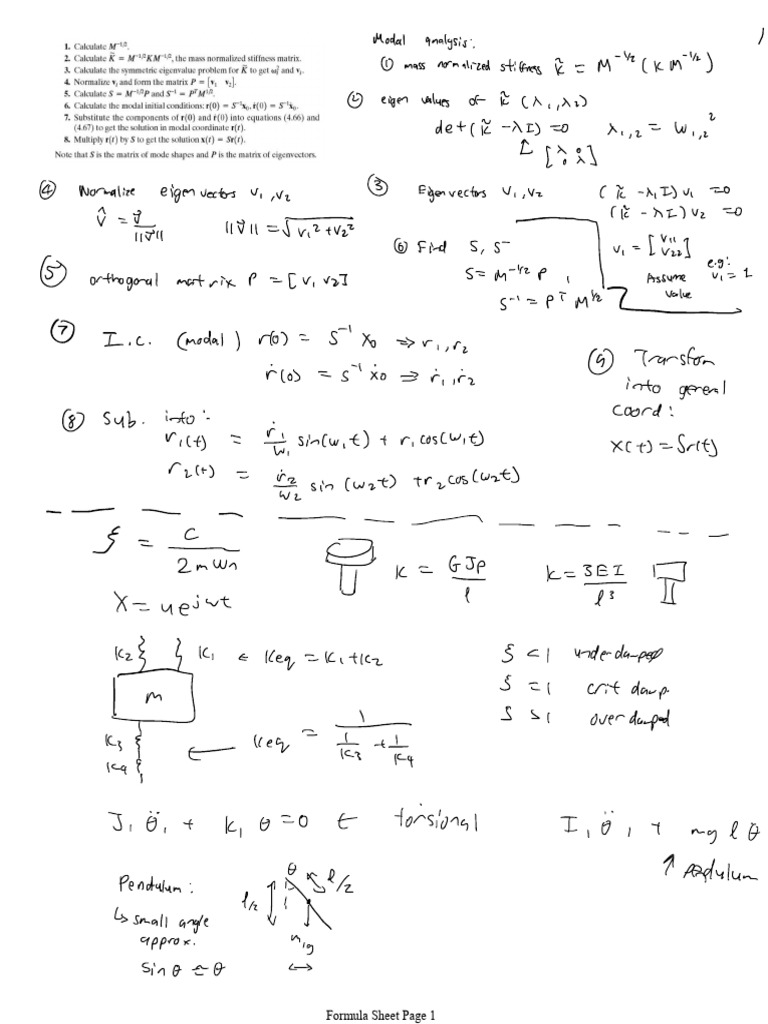 1. Calculate M^{-1/2}.
2. Calculate K̃ = M^{-1/2}KM^{-1/2}, the mass normalized stiffness matrix.
3. Calculate the symmetric eigenvalue problem for K̃ to get ω_i^2 and v_i.
4. Normalize v_i and form the matrix P = [v_1 v_2].
5. Calculate S = M^{-1/2}P and S^{-1} = P^TM^{1/2}.
6. Calculate the modal initial conditions: r(0) = S^{-1}x_0, ṙ(0) = S^{-1}ẋ_0.
7. Substitute the components of r(0) and ṙ(0) into equations (4.66) and
(4.67) to get the solution in modal coordinate r(t).
8. Multiply r(t) by S to get the solution x(t) = Sr(t).
Note that S is the matrix of mode shapes and P is the matrix of eigenvectors.
Modal analysis:
① mass normalized stiffness K̃ = M^{-1/2} (K M^{-1/2})
② eigen values of K̃ (λ_1, λ_2)
det(K̃ - λI) = 0 λ_{1,2} = ω_{1,2}^2
[λ 0
0 λ]
③ Eigenvectors v_1, v_2 (K̃ - λ_1 I) v_1 = 0
(K̃ - λI) v_2 = 0
v_1 = [v_11
v_22]
e.g:
Assume v_1 = 1
value
④ Normalize eigenvectors v_1, v_2
v̂ = v⃗ / ||v⃗|| ||v⃗|| = √(v_1^2 + v_2^2)
⑤ orthogoral matrix P = [v_1 v_2]
⑥ Find S, S^-
S = M^{-1/2} P ,
S^{-1} = P^T M^{1/2}
⑦ I.C. (modal) r(0) = S^{-1} x_0 ⇒ r_1, r_2
ṙ(0) = S^{-1} ẋ_0 ⇒ ṙ_1, ṙ_2
⑧ Sub. into:
r_1(t) = ṙ_1/ω_1 sin(ω_1 t) + r_1 cos(ω_1 t)
r_2(t) = ṙ_2/ω_2 sin(ω_2 t) + r_2 cos(ω_2 t)
⑨ Transform
into general
coord:
X(t) = Sr(t)
ξ = c / 2mωn
K = GJp / l
K = 3EI / l^3
X = ue^{jωt}
K2 K1 ← Keq = K1 + K2
m
K3
K4
← Keq = 1 / (1/K3 + 1/K4)
ξ < 1 underdamped
ξ = 1 crit damp.
ξ > 1 over damped
J_1 θ̈_1 + K_1 θ = 0 ← torsional
I_1 θ̈_1 + mg l θ
↑ pendulum
Pendulum:
↳ small angle
approx.
sin θ ≈ θ
l/2
θ
l/2
m_1g
Formula Sheet Page 1